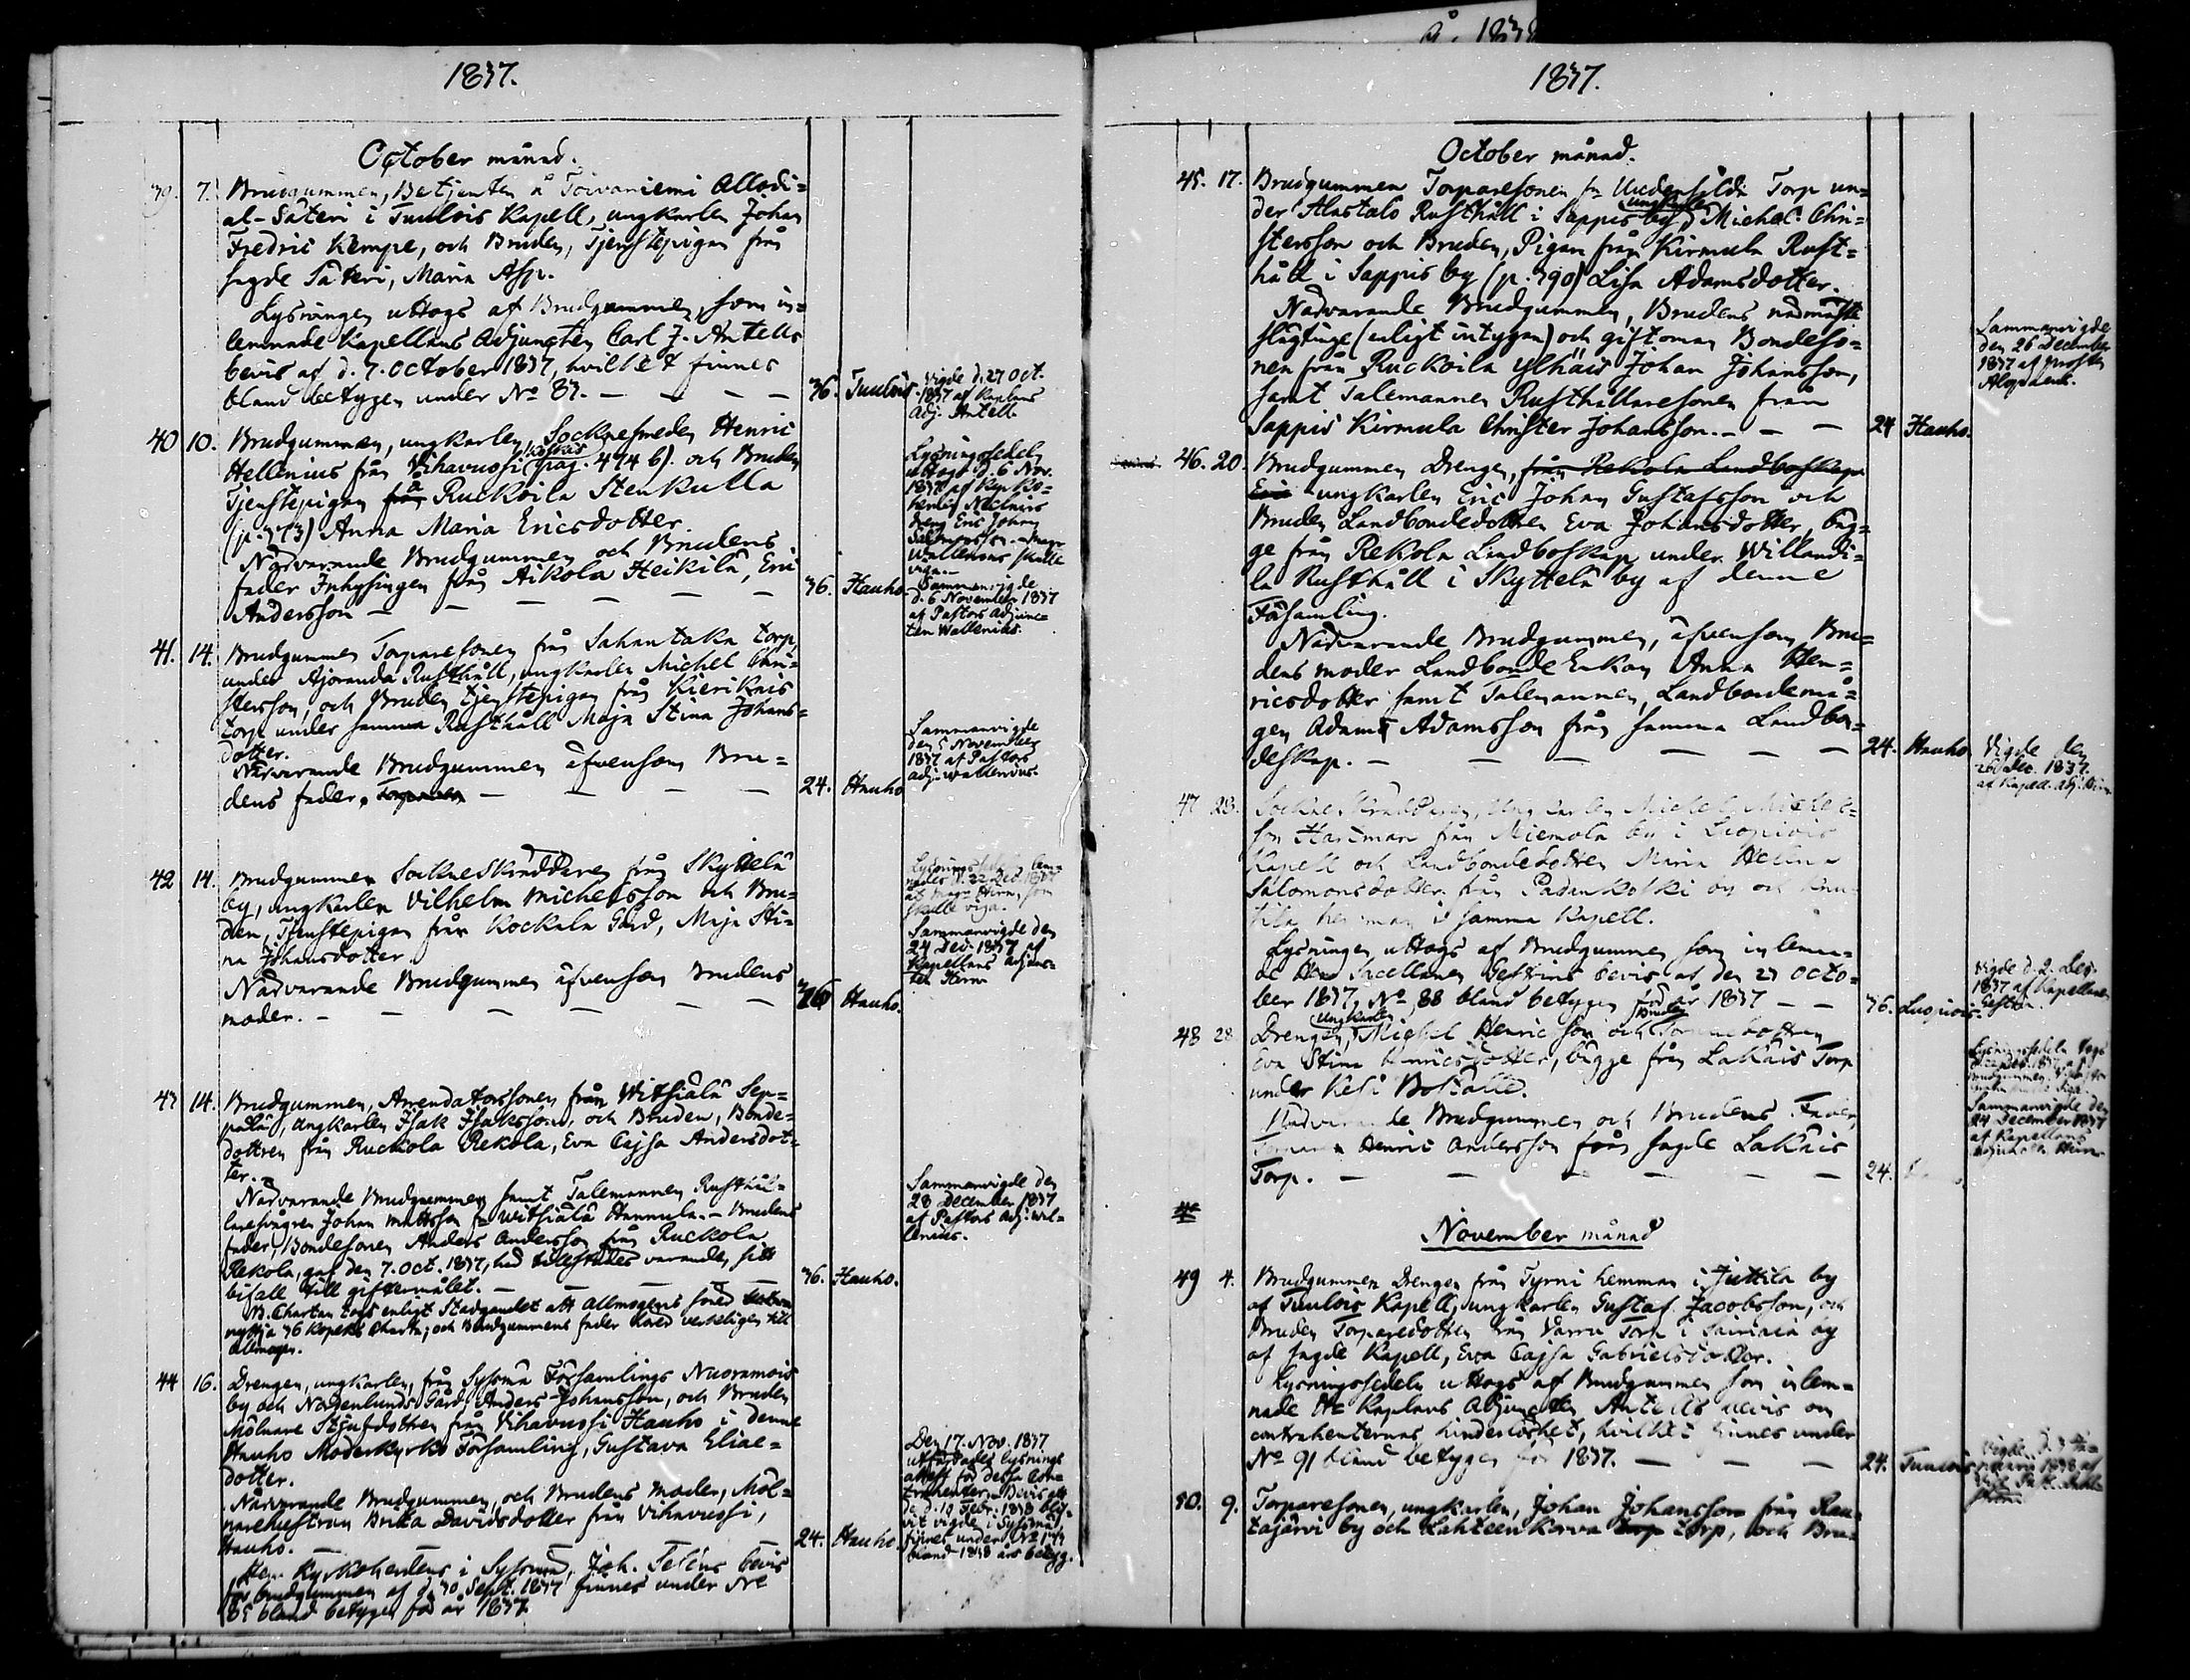 1837.
October månad.
39. 7. Brudgummen, Betjenten å Toivaniemi Allodi=
al-Säteri i Tuulois Kapell, ungkarlen Johan
Fredric Kempe, och Bruden, Tjenstepigan från
sagde Säteri, Maria Asp.
Lysningen uttogs af Brudgummen, som in=
lemnade Kapellans Adjuncten Carl J. Antells
bevis af d. 7. October 1837, hvilket finnes
bland betygen under No 87. — — — —
36. Tuulois.
Vigde d. 27 Oct.
1837 af Kaplans
Adj. Antell.
40 10. Brudgummen, ungkarlen, Socknesmeden Henric
Hellenius från Vihavuosi (pag. 474 b). och Bruden
Tjenstepigan från å Ruckoila Stenkulla
(p. 373) Anna Maria Ericsdotter.
Närvarande Brudgummen och Brudens
fader Inhysingen från Aikola Heikilä, Eric
Andersson — — — — — —
36. Hauho.
Lysningssedeln
uttogs d. 6 Nov.
1837 af
dreng Eric Johan
Salomonsson.
Wallenius skulle
viga.—
Sammanvigde
d. 6 November 1837
af Pastors Adjunc=
ten Wallenius.
41. 14. Brudgummen Torparesonen från Sahantaka torp
under Ajoranda Rusthåll, ungkarlen Michel Chri=
stersson, och Bruden tjenstepigan från Kierikais
torp under samma Rusthåll Maja Stina Johans=
dotter.
Närvarande Brudgummen äfvensom Bru=
dens fader. — — — —
24. Hauho
Sammanvigde
den 5 November
1837 af Pastors
adj. Wallenius.
42 14. Brudgummen SockneSkräddaren från Skyttelä
by, ungkarlen Vilhelm Michelsson och Bru=
den, Tjenstepigan från Kockala Gård, Maja Sti=
na Johansdotter.
Närvarande Brudgummen äfvensom Brudens
moder. — — — — —
36 Hauho.
Lysningssedeln lem=
nades d. 22 Dec. 1837
skulle viga.
Sammanvigde den
24 Dec. 1837 af
Kapellans Adjunc=
ten Hirn
43 14. Brudgummen, Arrendatorssonen från Witsiälä Sep=
pälä, ungkarlen Isak Isaksson, och Bruden, Bonde=
dottren från Ruckola Rekola, Eva Cajsa Andersdot=
ter.
Närvarande Brudgummen samt Talemannen Rusthål=
laresvågren Johan Mattsson fr Witsiälä Hannula.— Brudens
fader, Bondesonen Anders Andersson från Ruckola
Rekola, gaf den 7. Oct. 1837, här tillstädes varande, sitt
bifall till giftermålet. — — — —
36. Hauho.
NB. Chartan togs enligt Stadgandet att Allmogens söner
nyttja 36 Kopeks Charta; och Brudgummens fader hörer verkeligen till
Allmogen.
Sammanvigde den
28 December 1837
af Pastors adj. Wal=
lenius.
44 16. Drengen, ungkarlen, från Sysmä Församlings Nuoramois
by och Nordenlunds Gård, Anders Johansson, och Bruden
Mölnare Stjufdottren från Vihavuosi Hauho i denne
Hauho Moderkyrko Församling, Gustava Eliae=
dotter.
Närvarande Brudgummen, och Brudens moder, Möl=
narehustrun Brita Davidsdotter från Vihavuosi,
Hauho. — — —
24. Hauho.
Herr Kyrkoherdens i Sysmä, Joh. Teléns bevis
för brudgummen af d. 30 Sept. 1837 finnes under No
85 bland betygen för år 1837.
Den 17. Nov. 1837
utfärdades lysnings
attest för dessa Con=
trahenter. Bevis att
de d. 10 Febr. 1838 blif=
vit vigde i Sysmä,
finnes under No
bland 1838 års betyg.
1837.
October månad.
45. 17. Brudgummen Torparesonen fr Uudensildi Torp un=
der Alastalo Rusthåll i Sappis by, ungkarlen Michel Chri=
stersson och Bruden, Pigan från Kirmula Rust=
håll i Sappis by (p. 390) Lisa Adamsdotter.
Närvarande Brudgummen, Brudens närmaste
slägtinge (enligt intygan) och giftoman Bondeso=
nen från Ruckoila Ylhäis Johan Johansson,
samt Talemannen Rusthållaresonen från
Sappis Kirmula Christer Johansson. — — —
24 Hauho.
Sammanvigde
den 26 December
1837 af Prosten
Alopaeus.
46. 20. Brudgummen Drengen, från Rekola Landboskap
Eric ungkarlen Eric Johan Gustafsson och
Bruden Landbondedottren Eva Johansdotter, bäg=
ge från Rekola Landboskap under Willandi=
la Rusthåll i Skyttelä by af denne
Församling.
Närvarande Brudgummen, äfvensom Bru=
dens moder Landbonde Enkan Anna Hen=
ricsdotter samt Talemannen, Landbondemå=
gen Adam Adamsson från samma Landbon=
deskap. — — — — —
24. Hauho
Vigde den
26 Dec. 1837.
af Kapell. adj. Hirn
47 23. Sockne Skräddaren, Ungkarlen Michel Michels=
son Hartman från Miemola by i Luopiois
Kapell och Landbondedottren Maria Helena
Salomonsdotter från Padankoski by och
hemman i samma Kapell.
Lysningen uttogs af Brudgummen som inlemna=
de Herr Sacellanen Gestrins bevis af den 21 Octo=
ber 1837, No 88 bland betygen för år 1837 — —
36. Luopiois.
Vigde d. 2. Dec.
1837 af Kapellanen
Gestrin.
48 28. Drengen, Ungkarlen Michel Henricsson och Bruden Torparedottren
Eva Stina Henricsdotter, bägge från Lakais Torp
under Keso Boställe.
Närvarande Brudgummen och Brudens Fader,
Torparen Henric Andersson från sagde Lakais
Torp. — — — — — —
24.
Sammanvigde den
24 December 1837
af Kapellans
adjuncten Hirn
November månad
49 4. Brudgummen Drengen från Tyrni hemman i Juttila by
af Tuulois Kapell, ungkarlen Gustaf Jacobsson, och
Bruden Torparedottren från Varra Torp i Sairiala by
af sagde Kapell, Eva Cajsa Gabrielsdotter.
Lysningssedeln uttogs af Brudgummen som inlem=
nade Hr Kaplans Adjuncten Antells bevis om
contrahenternas hinderlöshet, hvilket finnes under
No 91 bland betygen för 1837. — — —
24. Tuulois
50. 9. Torparesonen, ungkarlen, Johan Johansson från Rau=
tajärvi by och Lahteenkorva torp torp, och Bru=